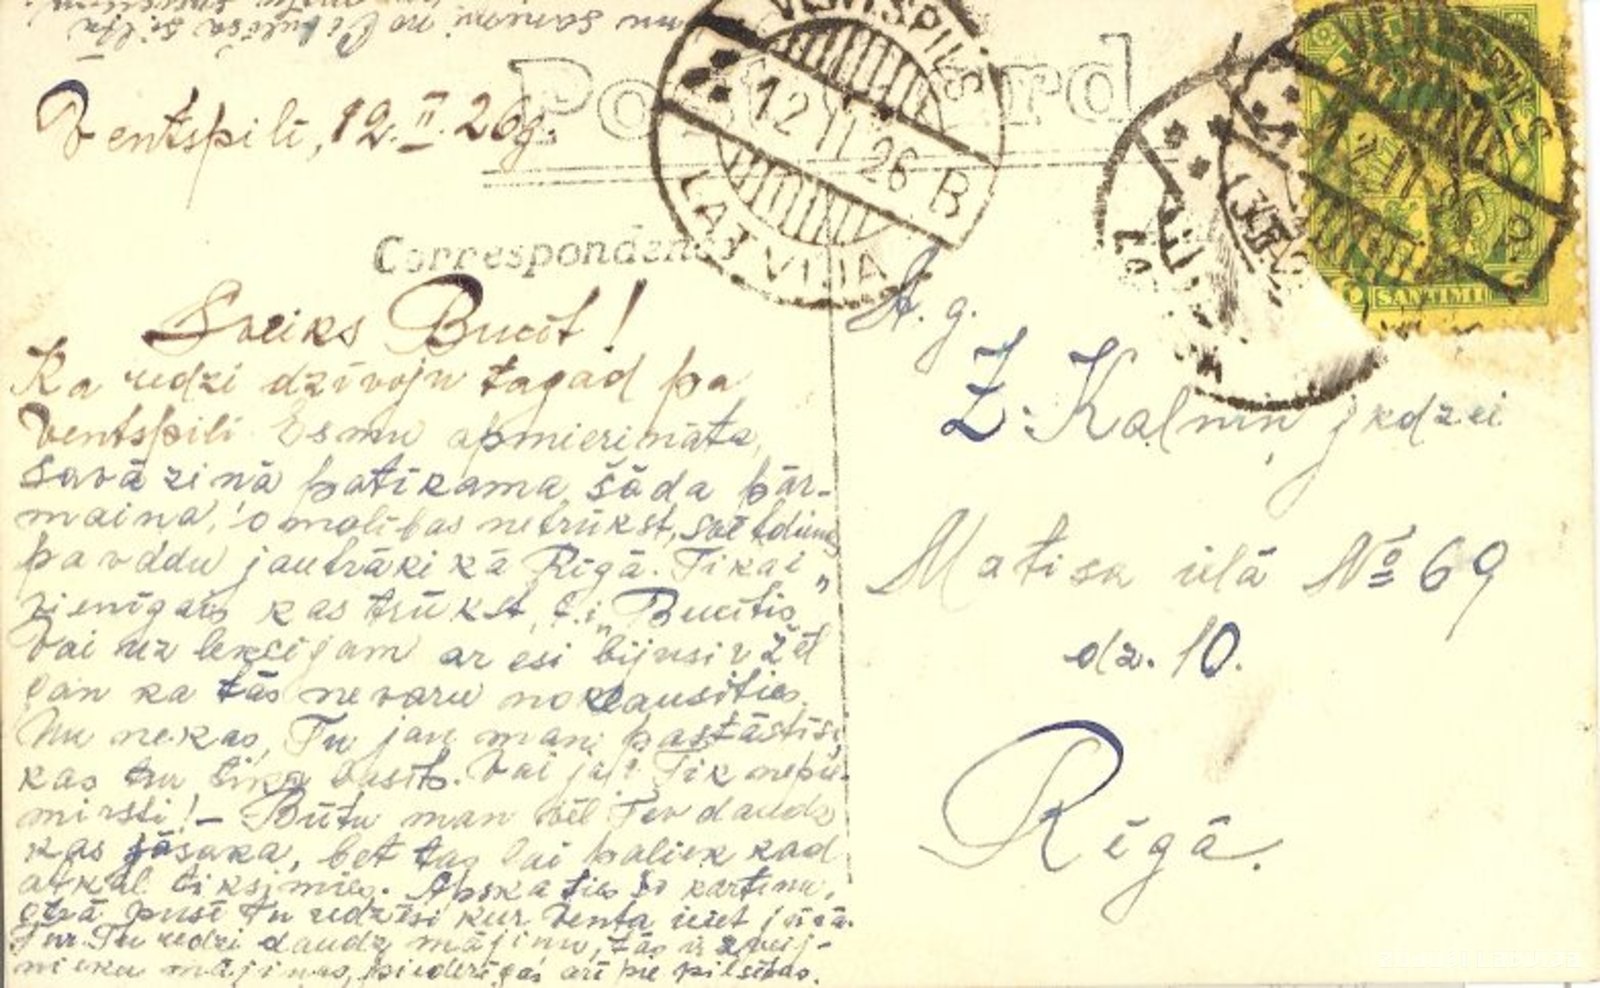 Post Card
Ventspilī, 12.II.26g.
VENTSPILS
12 II 26 B
LATVIJA
Correspondence
Sveiks Bucīt!
Ka redzi dzīvoju tagad pa
Ventspili Esmu apmierināta,
savā ziņā patīkama, šāda pār-
maiņa,
netrūkst, svētdienu
pavadu jautrāki kā Rīgā. Tikai
vienīgais kas trūkst, t.i. "Bucītis"
Vai uz lekcijām ar esi bijusi? Žēl
gan ka tās nevaru noklausīties.
Nu nekas, Tu jau mani pastāstīsi,
kas tur tika lasīts. Vai jā? Tik nepie-
mirsti! - Būtu man vēl Tev daudz
kas jāsaka, bet tas lai paliek kad
atkal tiksimies. Apskaties šo kartiņu,
otrā pusē tu redzēsi kur Venta ieiet jūrā.
Tur Tu redzi daudz mājiņu, tās ir zvej-
nieku mājiņas, piederīgas arī pie pilsētas.
A. g.
Z. Kalniņ jkdzei
Matisa ielā № 69
dz. 10.
Rīgā.
6 SANTIMI 6